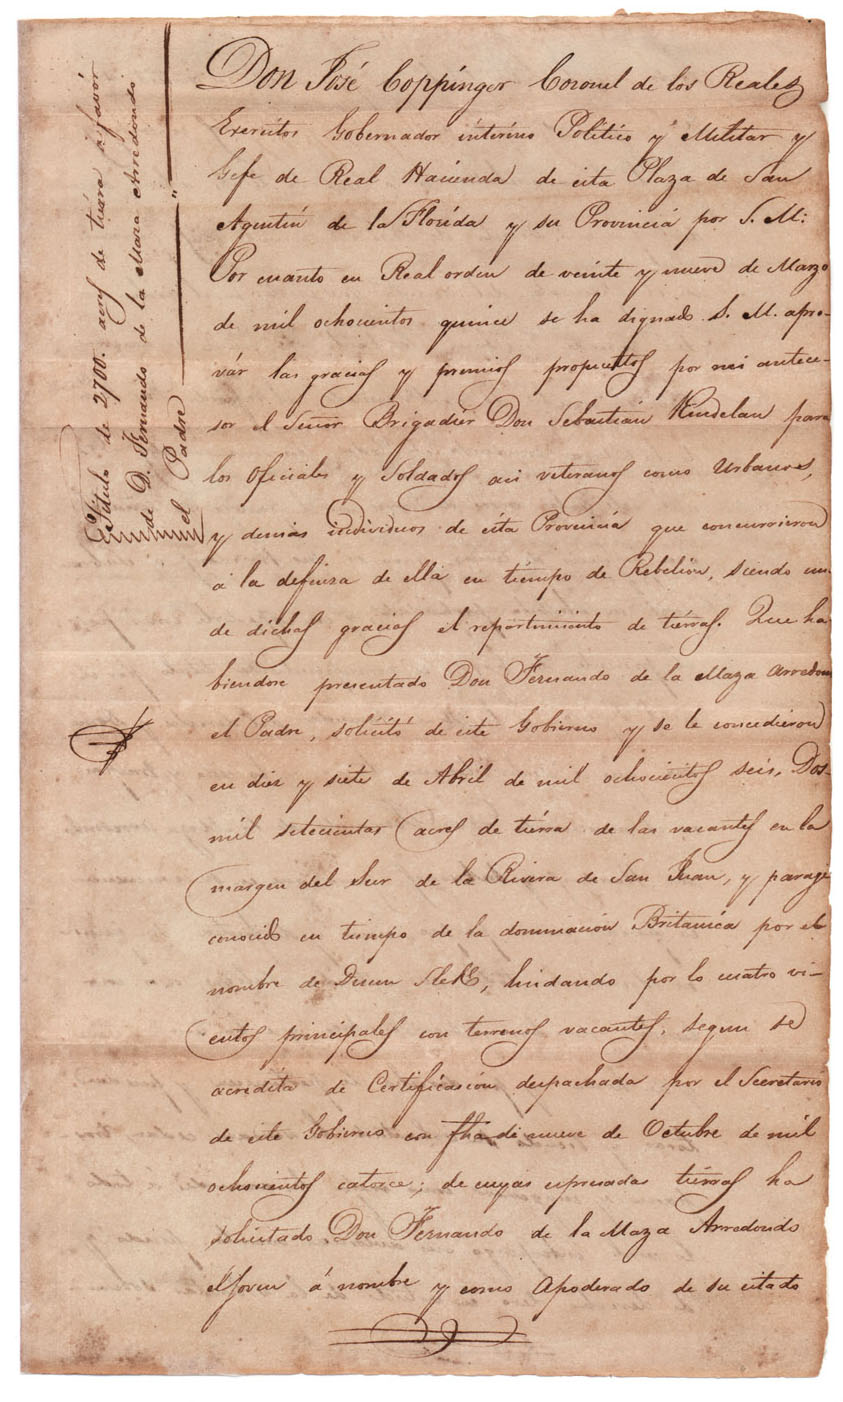 Titulo de 2700. acres de tierra a favor
de D. Fernando de la Maza Arredondo
el Padre
Don José Coppinger Coronel de los Reales
Exercitos Gobernador interino Politico y Militar y
Gefe de Real Hacienda de esta Plaza de San
Agustin de la Florida y su Provincia por S. M:
Por cuanto en Real orden de veinte y nueve de Marzo
de mil ochocientos quince se ha dignado S. M. apro-
vár las gracias y premios propuestos por mi antece-
sor el Señor Brigadiér Don Sebastian Kindelan para
los Oficiales y Soldados asi veteranos como Urbanos,
y demas individuos de esta Provincia que concurrieron
á la defenza de ella en tiempo de Rebelion, siendo una
de dichas gracias el repartimiento de tierras. Que ha
biendose presentado Don Fernando de la Maza Arredon
el Padre, solicitó de este Gobierno y se le concedieron
en diez y siete de Abril de mil ochocientos seis, Dos-
mil setecientos acres de tierra de las vacantes en la
margen del Sur de la Rivera de San Juan, y parage
conocido en tiempo de la dominación Britanica por el
nombre de, lindando por lo cuatro vi-
entos principales con terrenos vacantes, segun se
acredita de Certificasión despachada por el Secretario
de este Gobierno con fha de nueve de Octubre de mil
ochocientos catorce; de cuyas espresadas tierras ha
solicitado Don Fernando de la Maza Arredondo
el Joven á nombre y como Apoderado de su citado